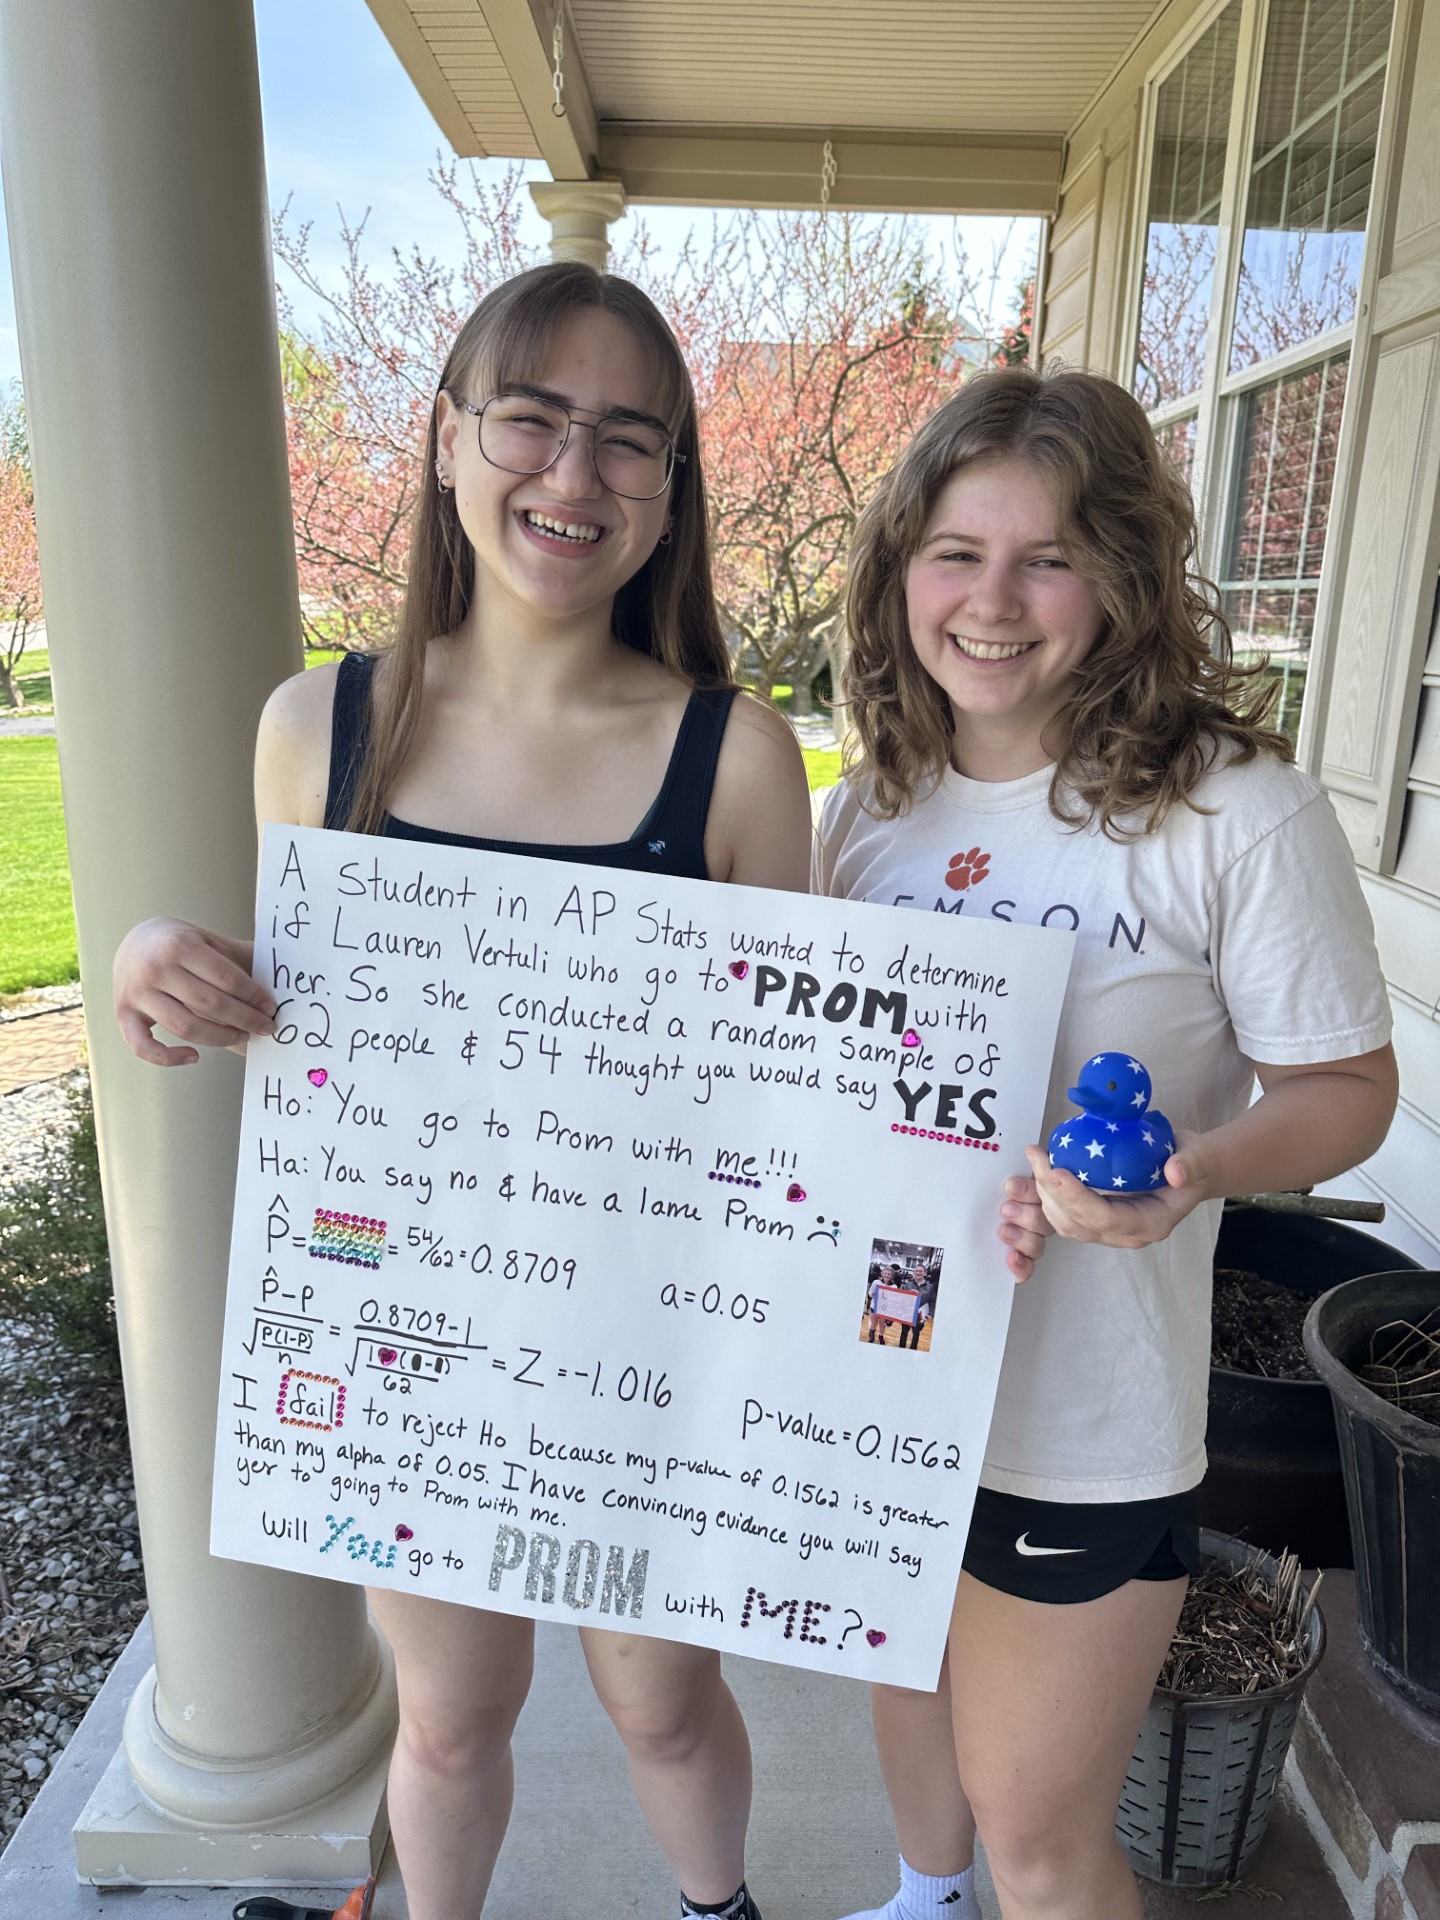 CLEMSON
A Student in AP Stats wanted to determine
if Lauren Vertuli who go to PROM with
her. So she conducted a random sample of
62 people & 54 thought you would say YES.
Ho: You go to Prom with me!!!
Ha: You say no & have a lame Prom
p̂ = = 54/62 = 0.8709 a=0.05
p̂-p / √(P(1-P)/n) = 0.8709-1 / √(1(1-1)/62) = Z = -1.016
p-value = 0.1562
I fail to reject Ho because my p-value of 0.1562 is greater
than my alpha of 0.05. I have convincing evidence you will say
yes to going to Prom with me.
Will You go to PROM with ME?